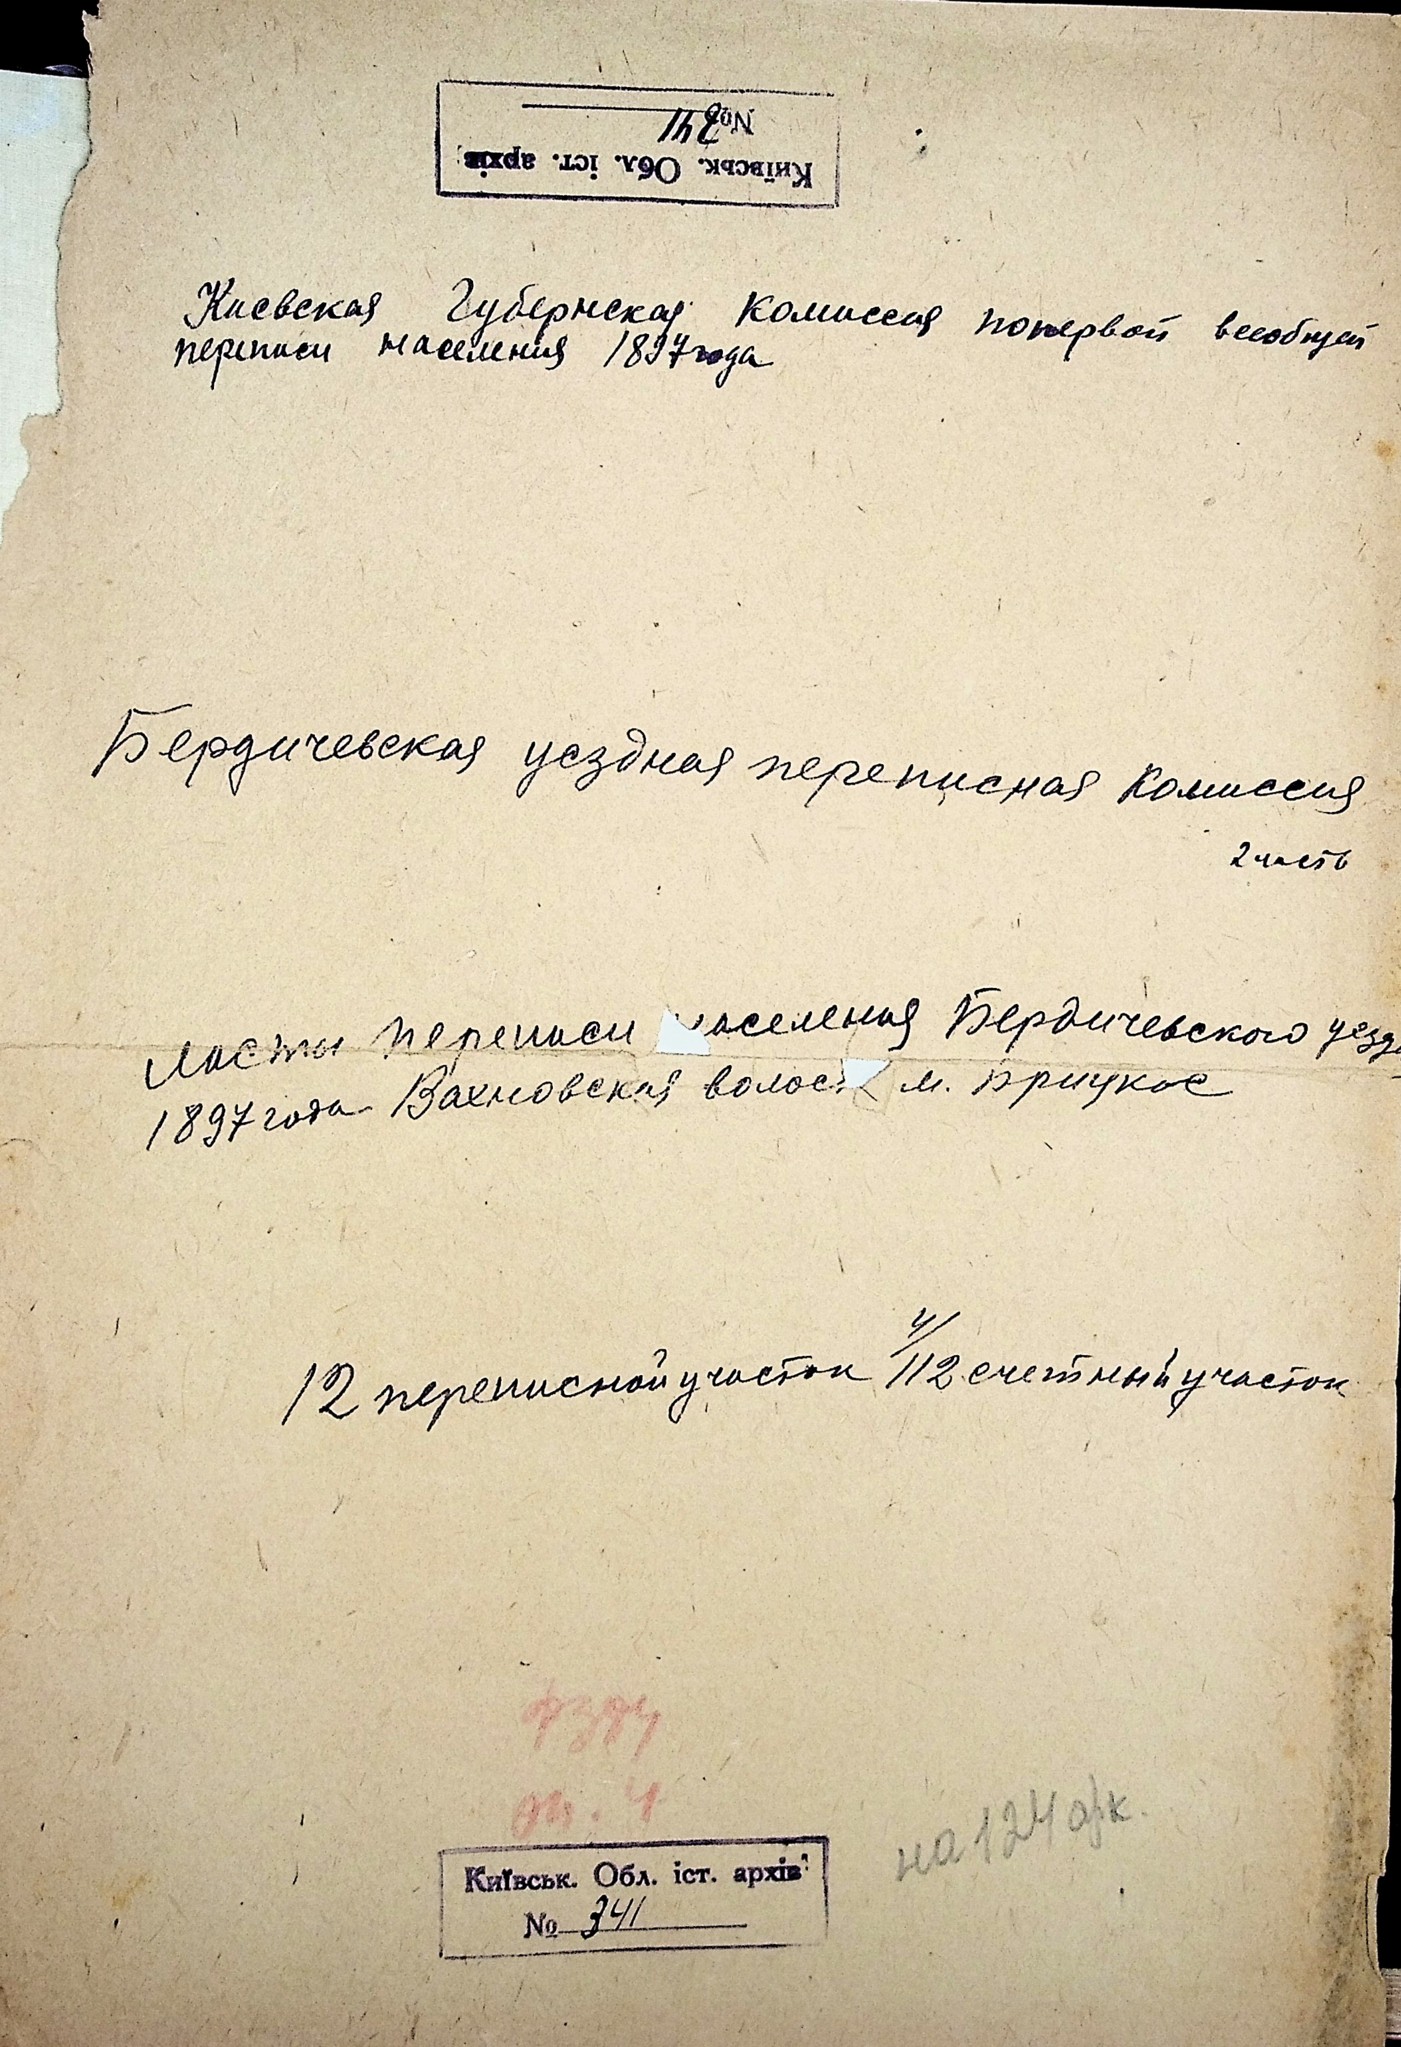 Київськ. Обл. іст. архів
№ 341
Киевская Губернская Комиссия попервой всеобщей
переписи населения 1897 года
Бердичевская уездная переписная Комиссия
2 часть
листы переписи населения Бердичевского уезда
1897 года Вахновская волость м. Прицкое
12 переписной участок 4/112 счетный участок
оп. 4
на 124 арк.
Київськ. Обл. іст. архів
№ 341